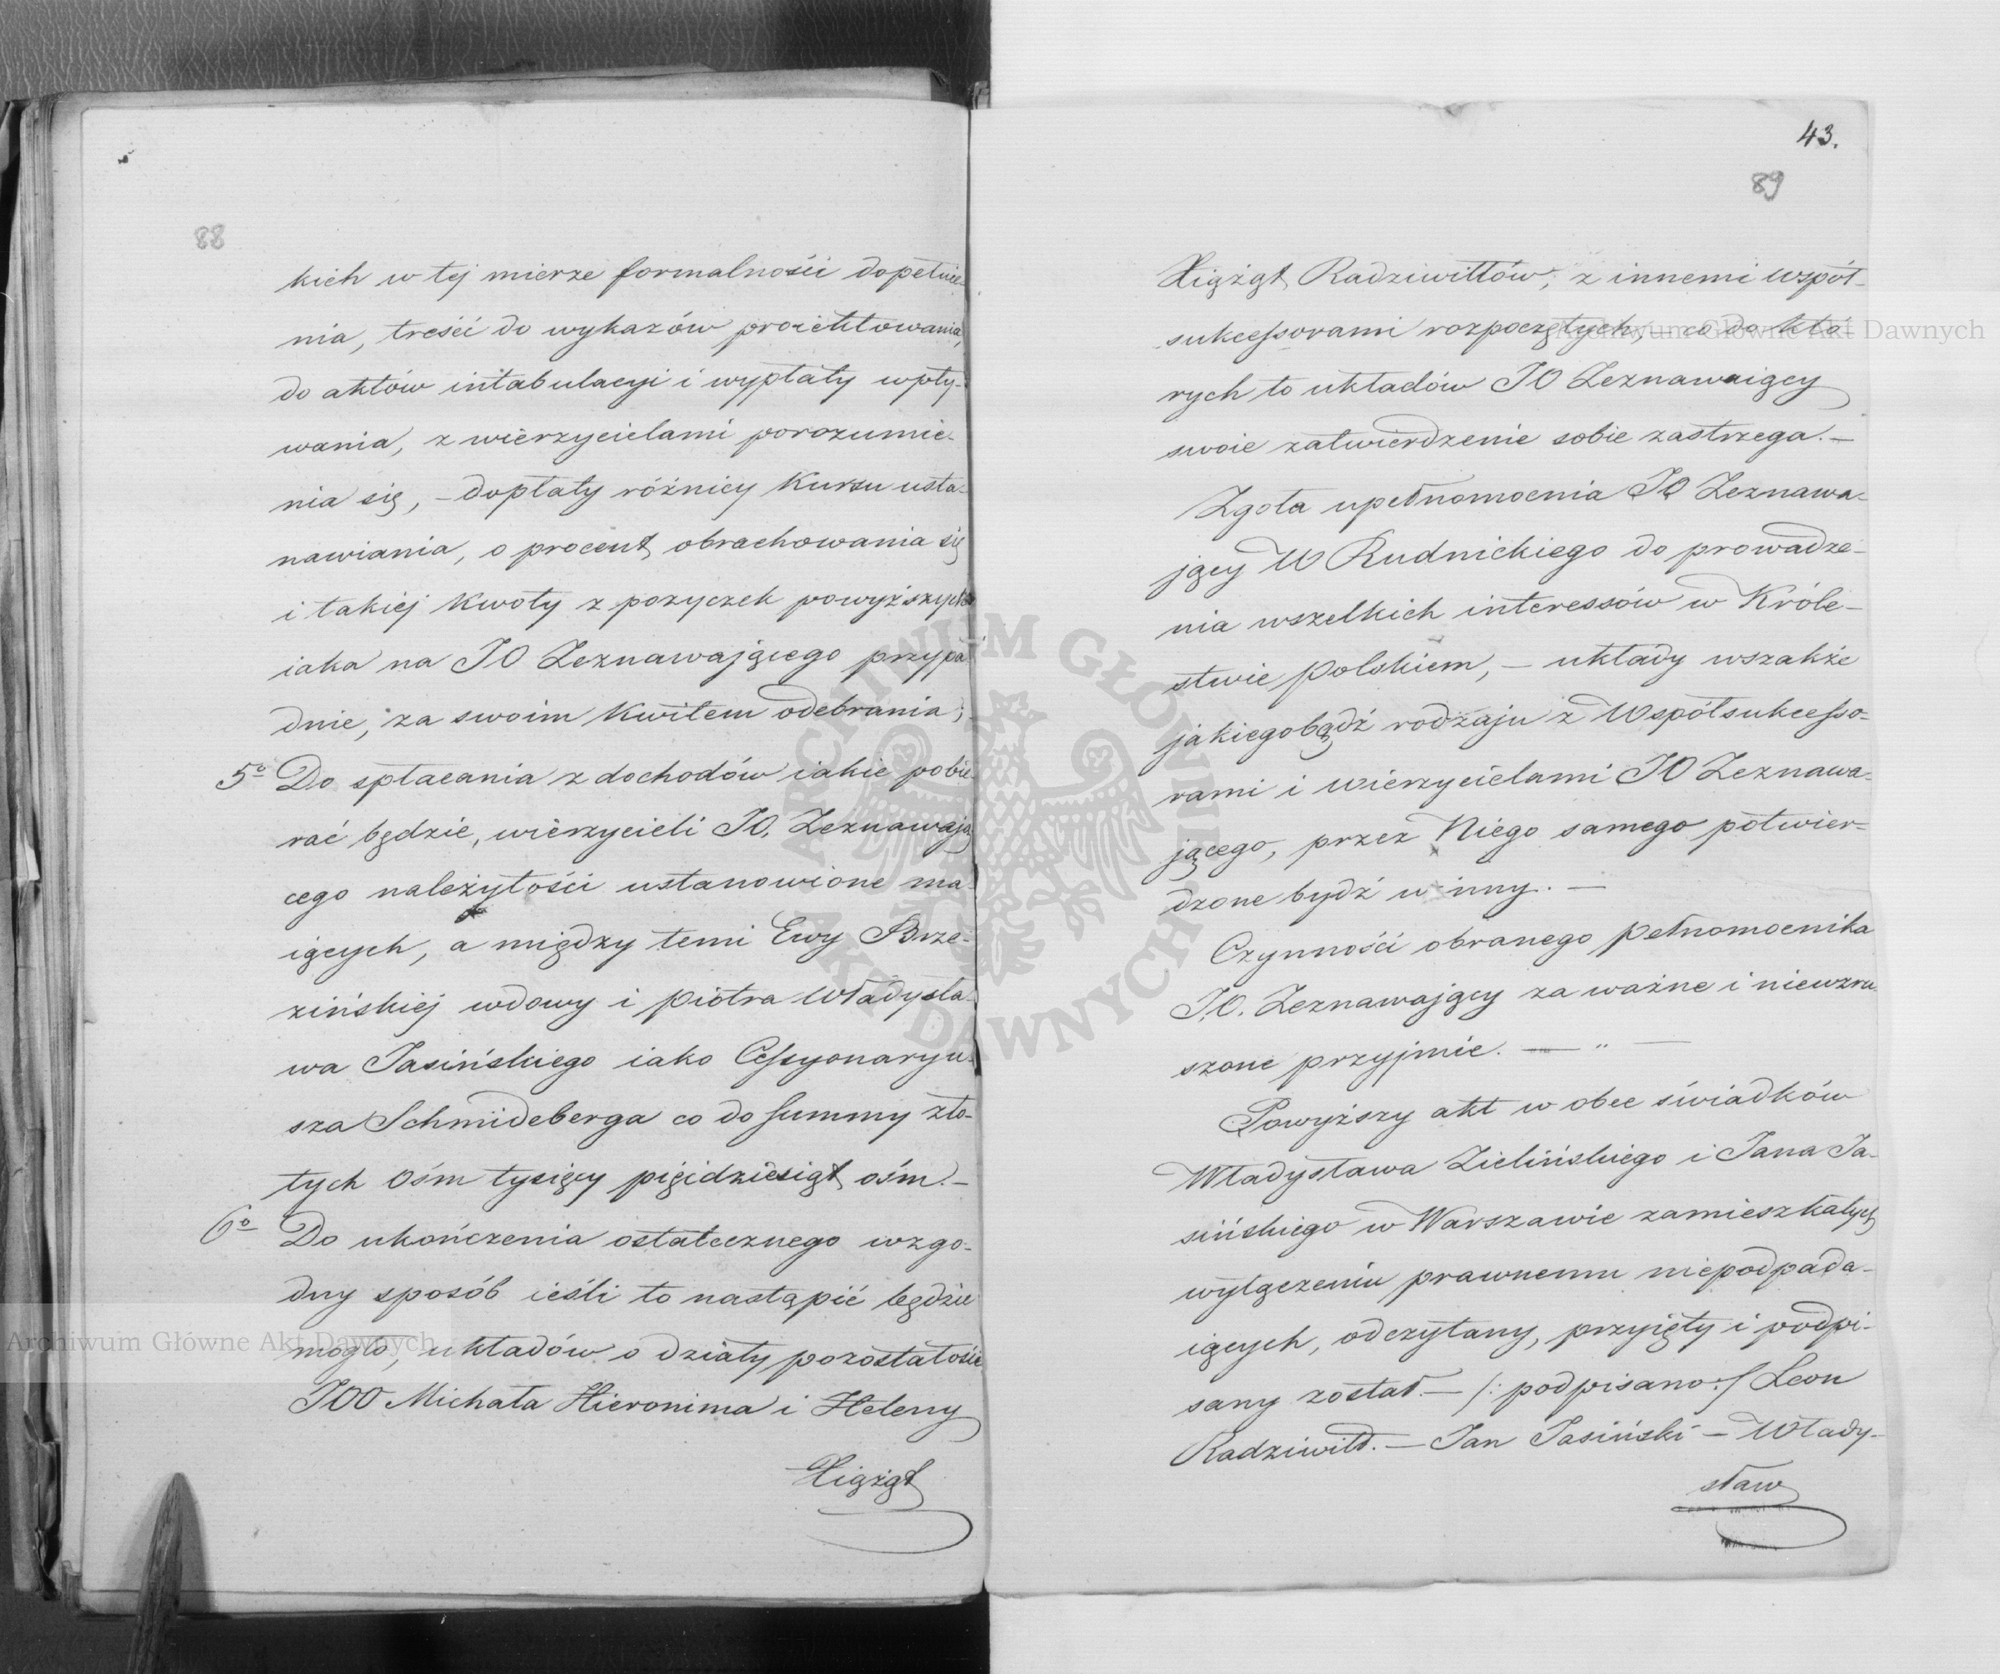 88
kich w tej mierze formalności dopełnie-
nia, treści do wykazów proiektowania,
do aktów intabulacyi i wypłaty wpły-
wania, z wierzycielami porozumie-
nia się, – dopłaty różnicy Kursu usta-
nawiania, o procent obrachowania się
i takiej Kwoty z pożyczek powyższych
iaka na JO Zeznawającego przypa
dnie, za swoim Kwitem odebrania;
5o Do spłacania z dochodów iakie pobie-
rać będzie, wierzycieli JO. Zeznawają
cego należytości ustanowione ma-
iących, a między temi Ewy Brze-
zińskiej wdowy i Piotra Władysła-
wa Jasińskiego iako Cessyonaryu-
sza Schmideberga co do Summy zło-
tych Ośm tysięcy pięćdziesiąt ośm. –
6o Do ukończenia ostatecznego w zgo-
dny sposób ieśli to nastąpić będzie
mogło, układów o działy pozostałości
JOO Michała Hieronima i Heleny
Xiążąt
43.
89
Xiążąt Radziwiłłów, z innemi współ-
sukcessorami rozpoczętych, – co do któ
rych to układów JO Zeznawaiący
swoie zatwierdzenie sobie zastrzega. –
Zgoła upełnomocnia JO Zeznawa-
jący W Rudnickiego do prowadze-
nia wszelkich interessów w Króle-
stwie Polskiem, – układy wszakże
jakiegobądź rodzaju z Współsukcesso-
rami i wierzycielami JO Zeznawa-
jącego, przez Niego samego potwier-
dzone bydź winny. –
Czynności obranego pełnomocnika
JO. Zeznawający za ważne i niewzru
szone przyjmie. – " –
Powyższy akt w obec świadków
Władysława Zielińskiego i Jana Ja-
sińskiego w Warszawie zamieszkałych
wyłączeniu prawnemu niepodpada-
iących, odczytany, przyięty i podpi-
sany został. – /: podpisano :/ Leon
Radziwiłł. – Jan Jasiński – Włady-
sław
Archiwum Główne Akt Dawnych
Archiwum Główne Akt Dawnych
ARCHIWUM GŁÓWNE AKT DAWNYCH